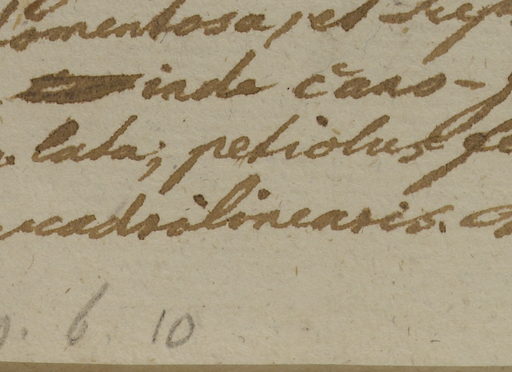 tomentosa, et
inde cano-
lata; petiolus
uadrilinearis.
6. 10